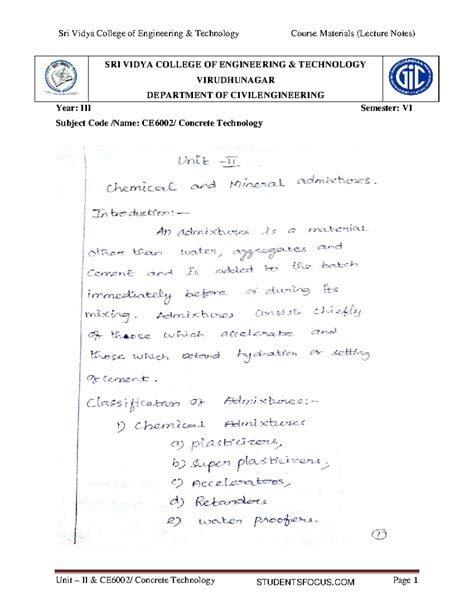 Sri Vidya College of Engineering & Technology Course Materials (Lecture Notes)
SRI VIDYA COLLEGE OF ENGINEERING & TECHNOLOGY
VIRUDHUNAGAR
DEPARTMENT OF CIVILENGINEERING
Year: III Semester: VI
Subject Code /Name: CE6002/ Concrete Technology
Unit - II
Chemical and Mineral admixtures.
Introduction:-
An admixtures is a material
other than water, aggregates and
cement and is added to the batch
immediately before or during its
mixing. Admixtures consists chiefly
of those which accelerate and
those which retard hydration or setting
of cement.
Classification of Admixtures:-
1) Chemical Admixtures
a) plasticizers,
b) Super plasticizers,
c) Accelerators,
d) Retarders
e) water proofers.
1
Unit – II & CE6002/ Concrete Technology STUDENTSFOCUS.COM Page 1